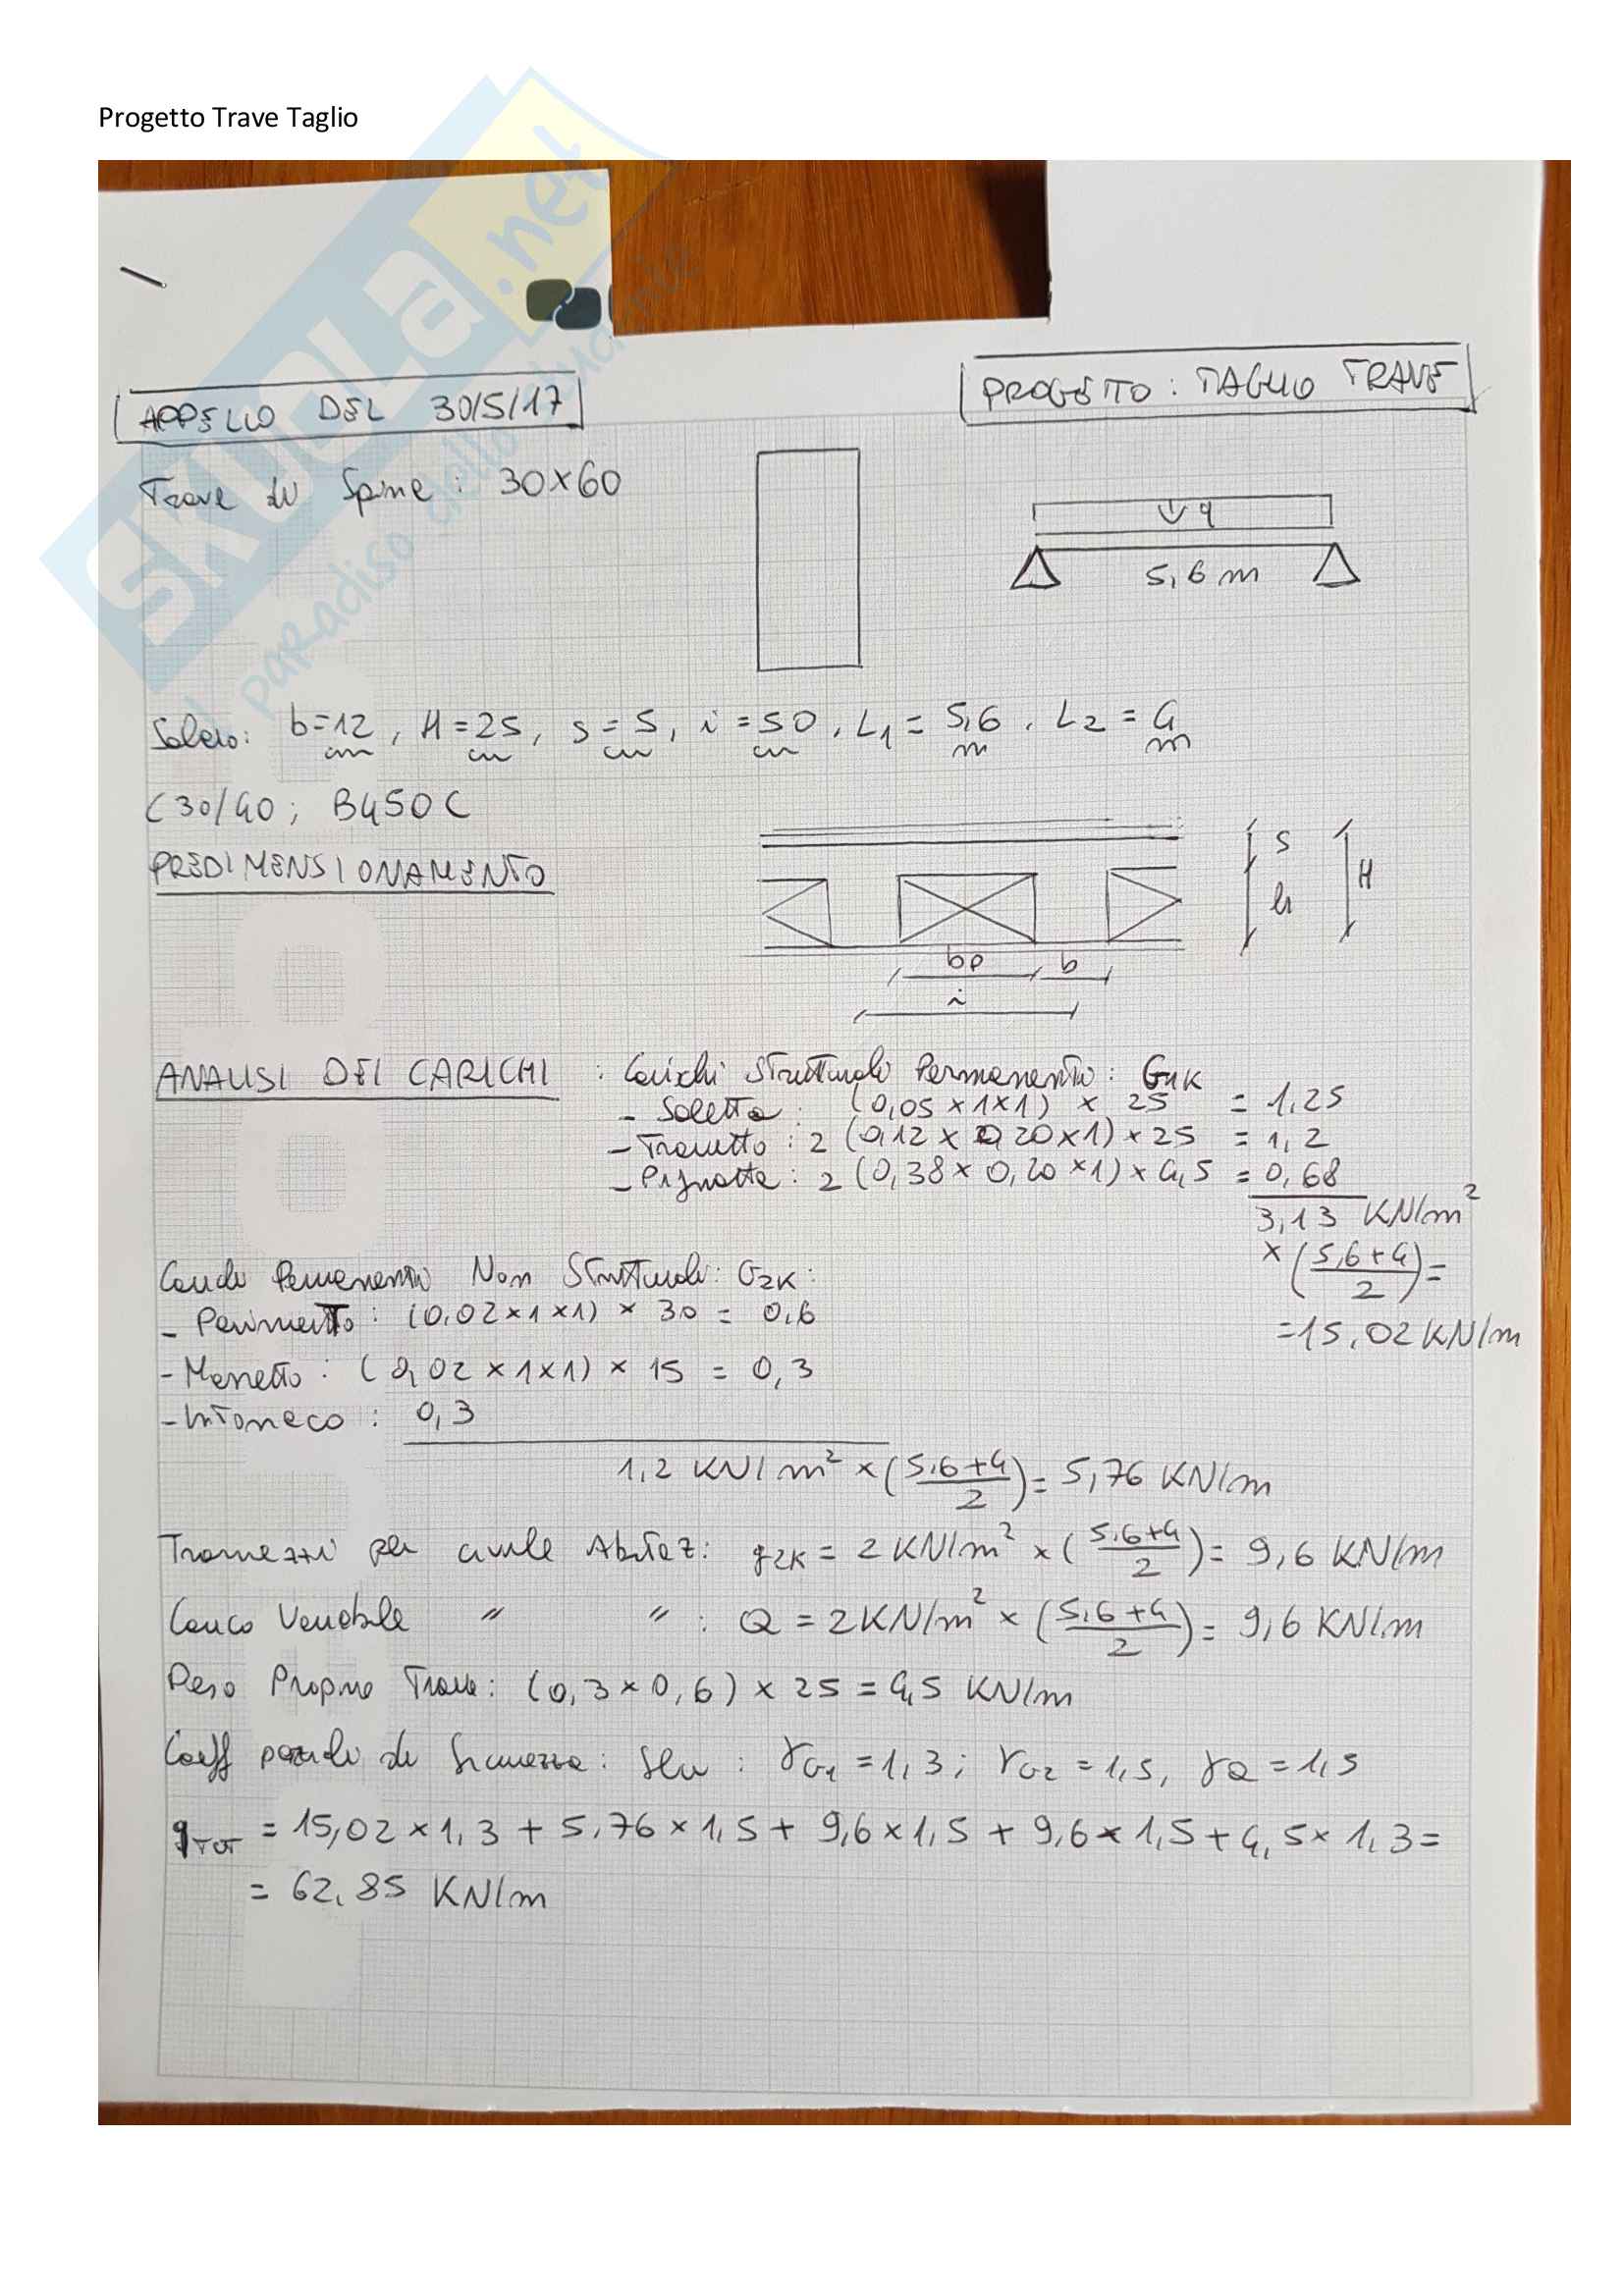 Progetto Trave Taglio
SKUOLA.net
il paradiso dello studente
APPELLO DEL 30/5/17
PROGETTO: TAGLIO TRAVE
Trave di Spina: 30x60
↓q
5,6 m
Solaio: b=12 cm, H=25 cm, s=5 cm, i=50 cm, L1=5,6 m, L2=4 m
C30/40; B450C
PREDIMENSIONAMENTO
s
h
H
bp b
i
ANALISI DEI CARICHI: Carichi Strutturali Permanenti: G1K
- Soletta: (0,05x1x1) x 25 = 1,25
- Travetto: 2 (0,12 x 0,20x1) x 25 = 1,2
- Pignatte: 2 (0,38x 0,20 x1) x 4,5 = 0,68
3,13 KN/m²
x (5,6+4/2) =
=15,02 KN/m
Carichi Permanenti Non Strutturali: G2K:
- Pavimento: (0,02x1x1) x 30 = 0,6
- Massetto: (0,02 x1x1) x 15 = 0,3
- Intonaco: 0,3
1,2 KN/m² x (5,6+4/2) = 5,76 KN/m
Tramezzi per civile Abitaz: g2K = 2 KN/m² x (5,6+4/2) = 9,6 KN/m
Carico Variabile " ": Q = 2KN/m² x (5,6+4/2) = 9,6 KN/m
Peso Proprio Trave: (0,3x0,6) x 25 = 4,5 KN/m
Coeff parziali di Sicurezza: Slu: γG1 =1,3; γG2 =1,5, γQ =1,5
qTOT = 15,02x1,3 + 5,76x1,5 + 9,6x1,5 + 9,6x1,5 + 4,5x 1,3=
= 62,85 KN/m